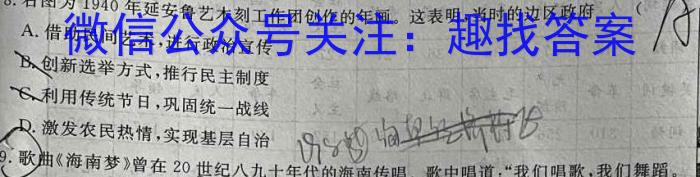 8. 右图为 1940 年延安鲁艺木刻工作团创作的年画。这表明,当时的边区政府 (
微信公众号关注:趣找答案
A. 借助民间艺术,进行政治宣传
B. 创新选举方式,推行民主制度
C. 利用传统节日,巩固统一战线
D. 激发农民热情,实现基层自治
9. 歌曲《海南梦》曾在 20 世纪八九十年代的海南传唱。歌中唱道:“我们唱歌,我们舞蹈。